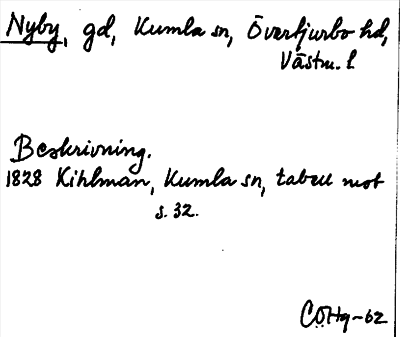 Nyby, gd, Kumla sn, Övertjurbo hd,
Västm. l
Beskrivning.
1828 Kihlman, Kumla sn, tabell mot
s. 32.
CÖHg-62